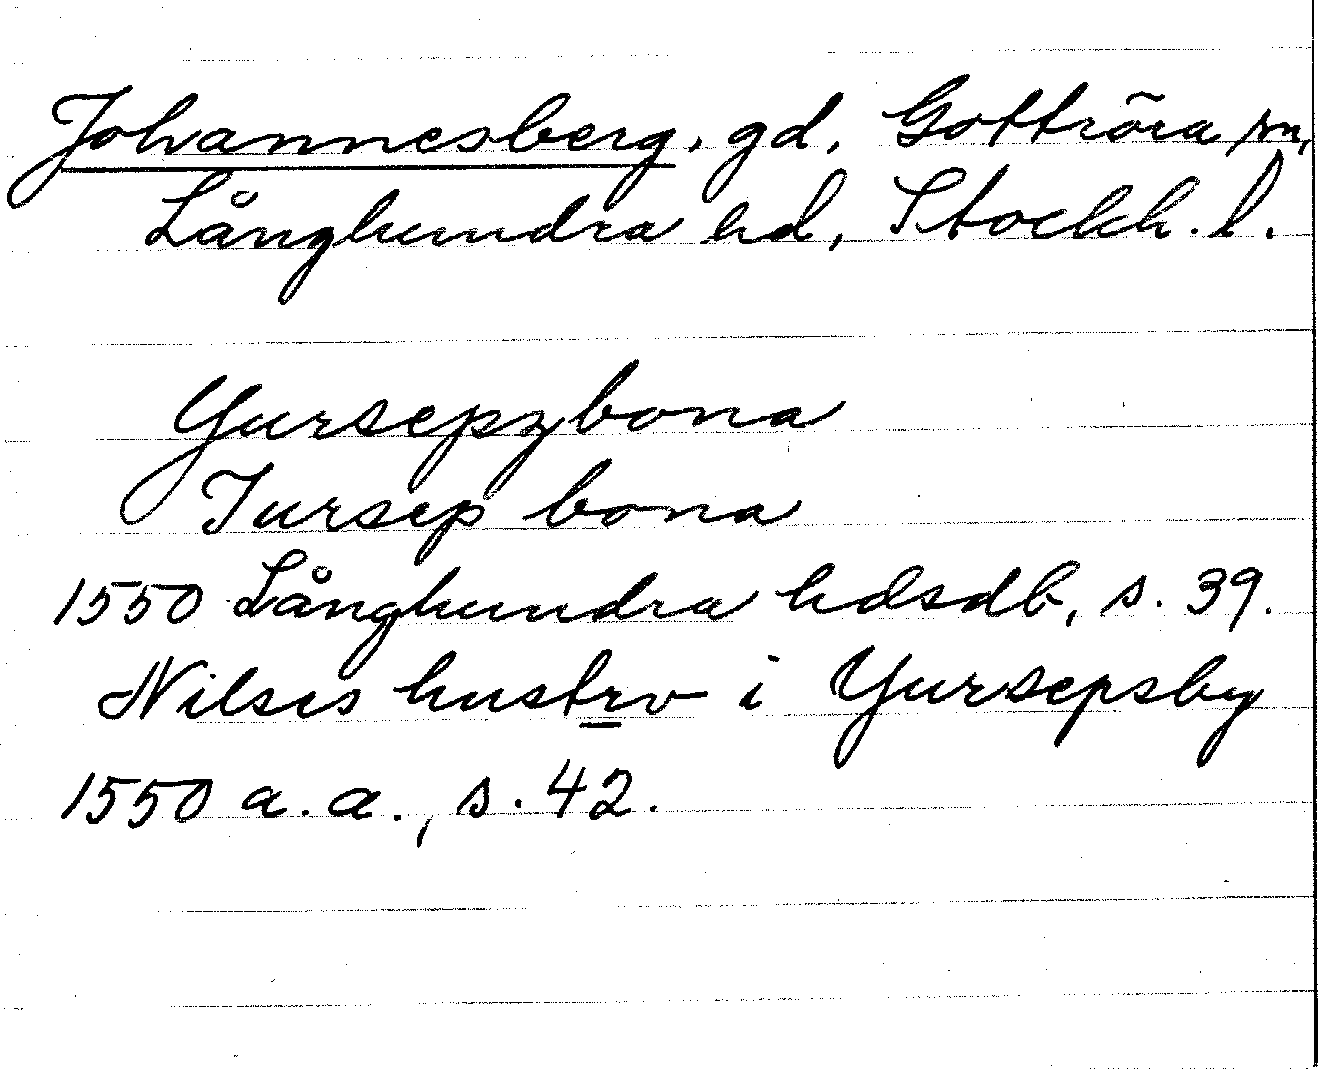 Johannesberg, gd, Gottröra sn,
Långhundra hd, Stockh. l.
Yursepzbona
Jursep bona
1550 Långhundra hdsdb, s. 39.
Nilses hustrv i Yursepsby
1550 a. a., s. 42.